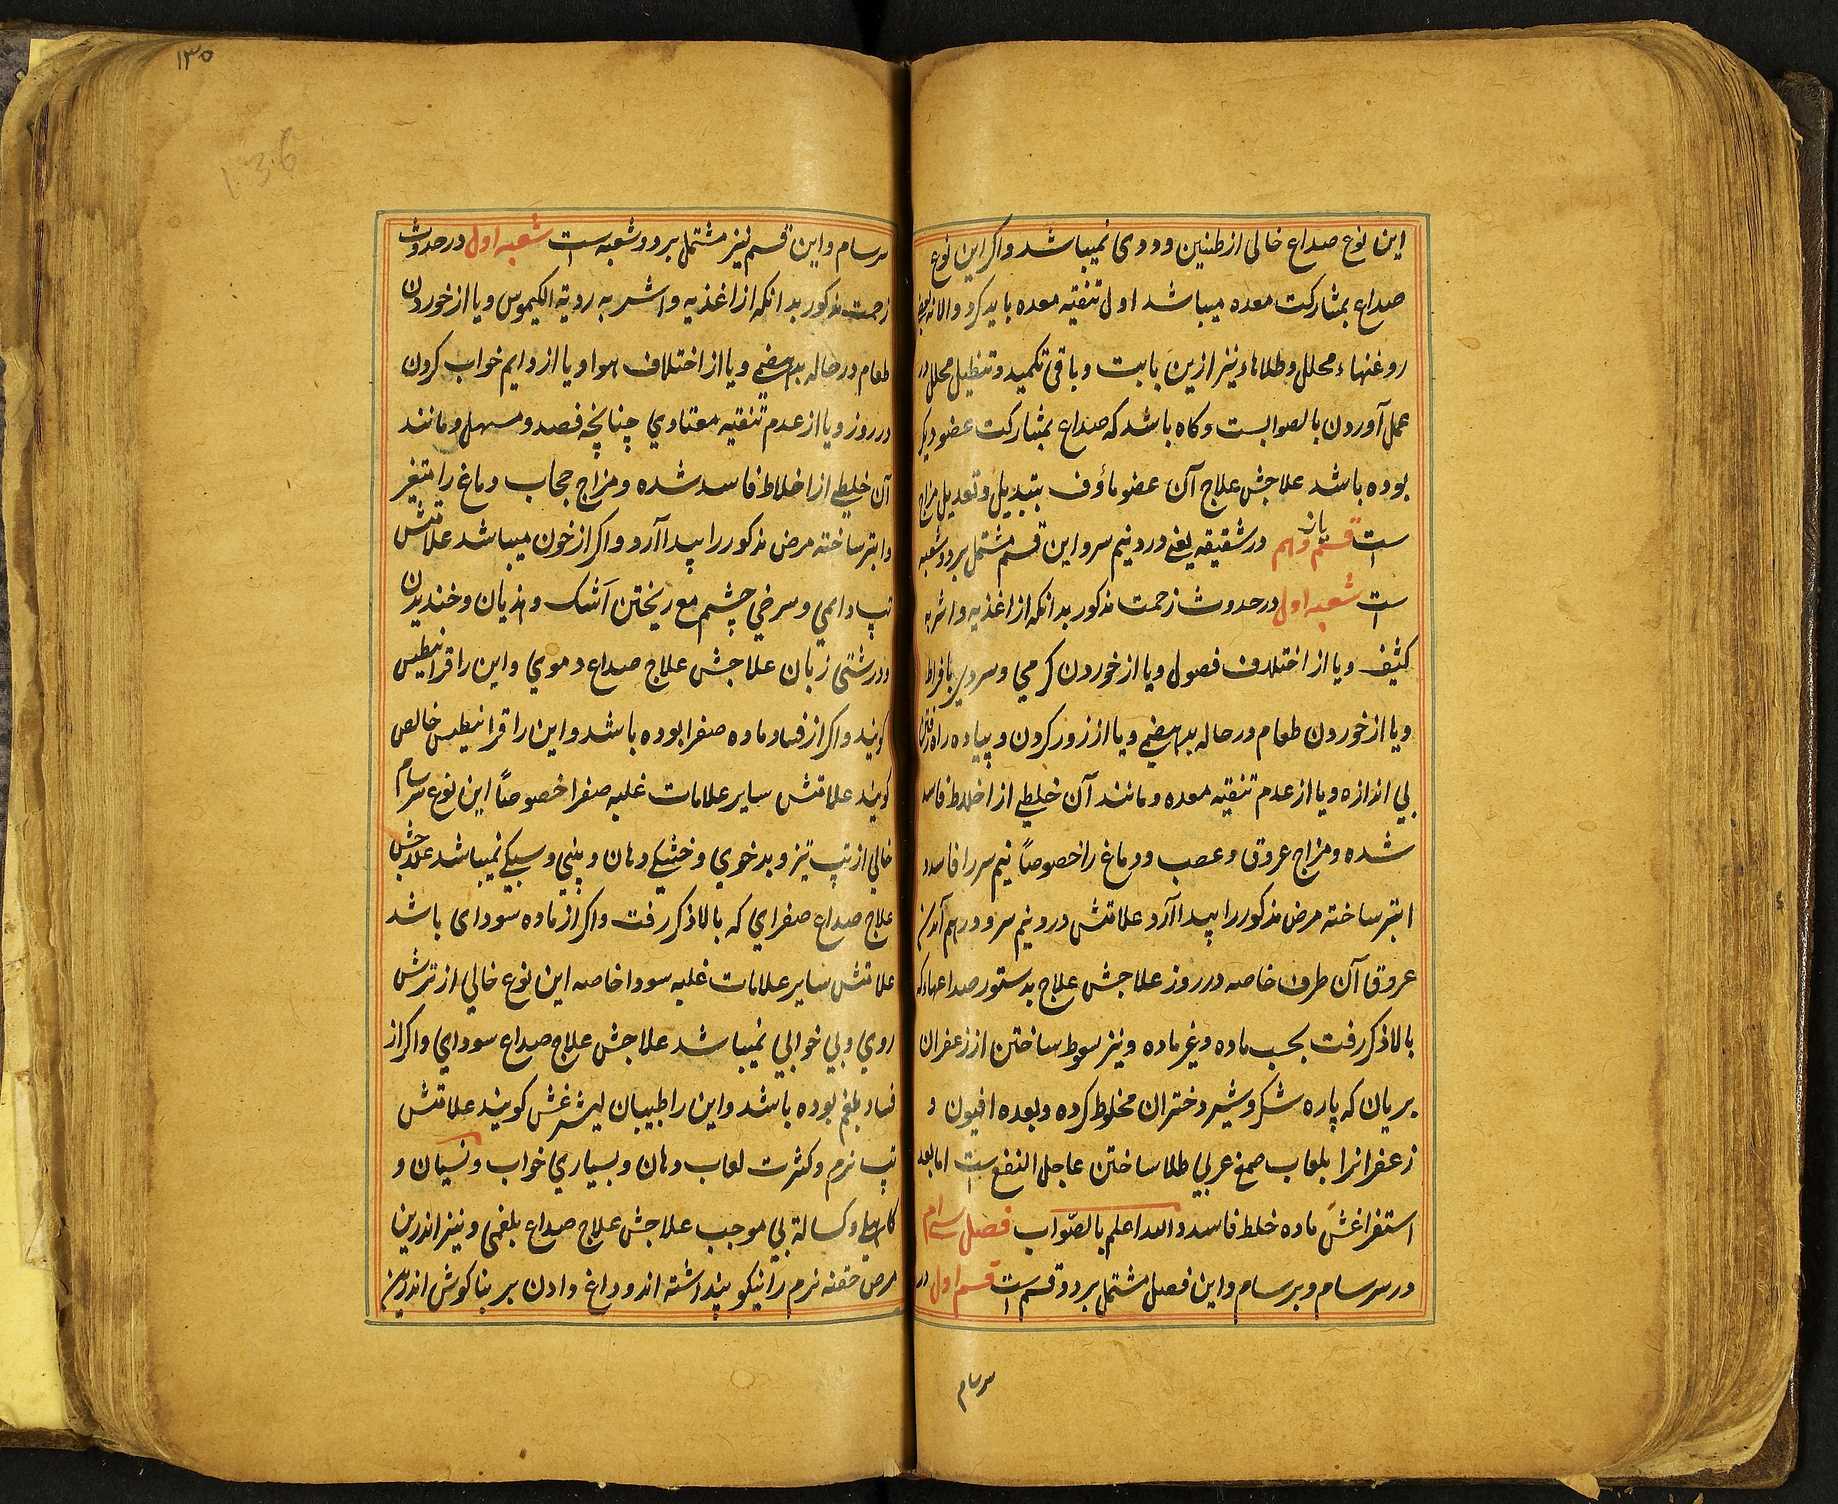 این نوع صداع خالی از طنین و دوی نمیباشد واکر این نوع
صداع بمشارکت معده میباشد اول تنقیه معده باید کرد والا نه
روغنهاء محلل وطلاها نیز ازین بابت وباقی تکمید وتنطیل محلل در
عمل آوردن بالصوابست وکاه باشد که صداع بمشارکت عضو دیکر
بوده باشد علاجش علاج آن عضو ماؤف بتبدیل وتعدیل مزاج
است قسم یازدهم در شقیقه یعنی درد نیم سر واین قسم مشتمل بر دو شعبه
است شعبه اول در حدوث زحمت مذکور بدانکه از اغذیه واشربه
کثیف ویا از اختلاف فصول ویا از خوردن کرمی وسردی بافراط
ویا از خوردن طعام در حاله بدهضمی ویا از زور کردن وپیاده راه رفتن
بی اندازه ویا از عدم تنقیه معده ومانند آن خلطی از اخلاط فاسد
شده ومزاج عروق وعصب ودماغ را خصوصاً نیم سر را فاسد و
ابتر ساخته مرض مذکور را پیدا آرد علامتش درد نیم سر ودرهم آمدن
عروق آن طرف خاصه در روز علاجش علاج بدستور صداعهاء که
بالا ذکر رفت بحسب ماده وغیر ماده ونیز سعوط ساختن از زعفران
بریان که پاره شکر وشیر دختران مخلوط کرده وبعده افیون و
زعفرانرا بلعاب صمغ عربی طلا ساختن عاجل النفع است اما بعد
استفراغش ماده خلط فاسد والله اعلم بالصّواب فصل سی ام
در سرسام وبرسام واین فصل مشتمل بر دو قسم است قسم اول در
سرسام
۱۳۵
136
سرسام واین قسم نیز مشتمل بر دو شعبه است شعبه اول در حدوث
زحمت مذکور بدانکه از اغذیه واشربه ردیة الکیموس ویا از خوردن
طعام در حاله بدهضمی ویا از اختلاف هوا ویا از دوایم خواب کردن
در روز ویا از عدم تنقیه معتادی چنانچه فصد ومسهل ومانند
آن خلطی از اخلاط فاسد شده ومزاج حجاب دماغ را متغیر
وابتر ساخته مرض مذکور را پیدا آرد واکر از خون میباشد علامتش
تپ دایمی وسرخی چشم مع ریختن آشک وهذیان وخندیدن
ودرشتی زبان علاجش علاج صداع دموی واین را قرانیطس
کویند واکر از فساد ماده صفرا بوده باشد واین را قرانیطس خالص
کویند علامتش سایر علامات غلبه صفرا خصوصاً این نوع سرسام
خالی از تپ تیز وبدخوی وخشکی دهان وبینی وسبکی نمیباشد علاجش
علاج صداع صفرای که بالا ذکر رفت واکر از ماده سودای باشد
علامتش سایر علامات غلبه سودا خاصه این نوع خالی از ترش
روی وبی خوابی نمیباشد علاجش علاج صداع سودای واکر از
فساد بلغم بوده باشد واین را طبیبان لیثرغش کویند علامتش
تپ نرم وکثرت لعاب دهان وبسیاری خواب ونسیان و
کاهلی وکسالة بی موجب علاجش علاج صداع بلغمی ونیز اندرین
مرض حقنه نرم را نیکو پنداشته اند وداغ دادن بر بناکوش اندرین